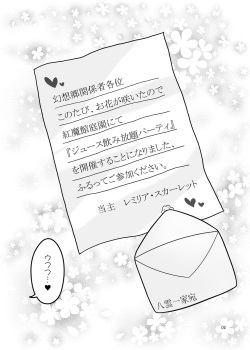 幻想郷関係者各位
このたび、お花が咲いたので
紅魔館庭園にて
『ジュース飲み放題パーティ』
を開催することになりました。
ふるってご参加ください。
当主 レミリア・スカーレット
八雲一家宛
ウフフ…♥